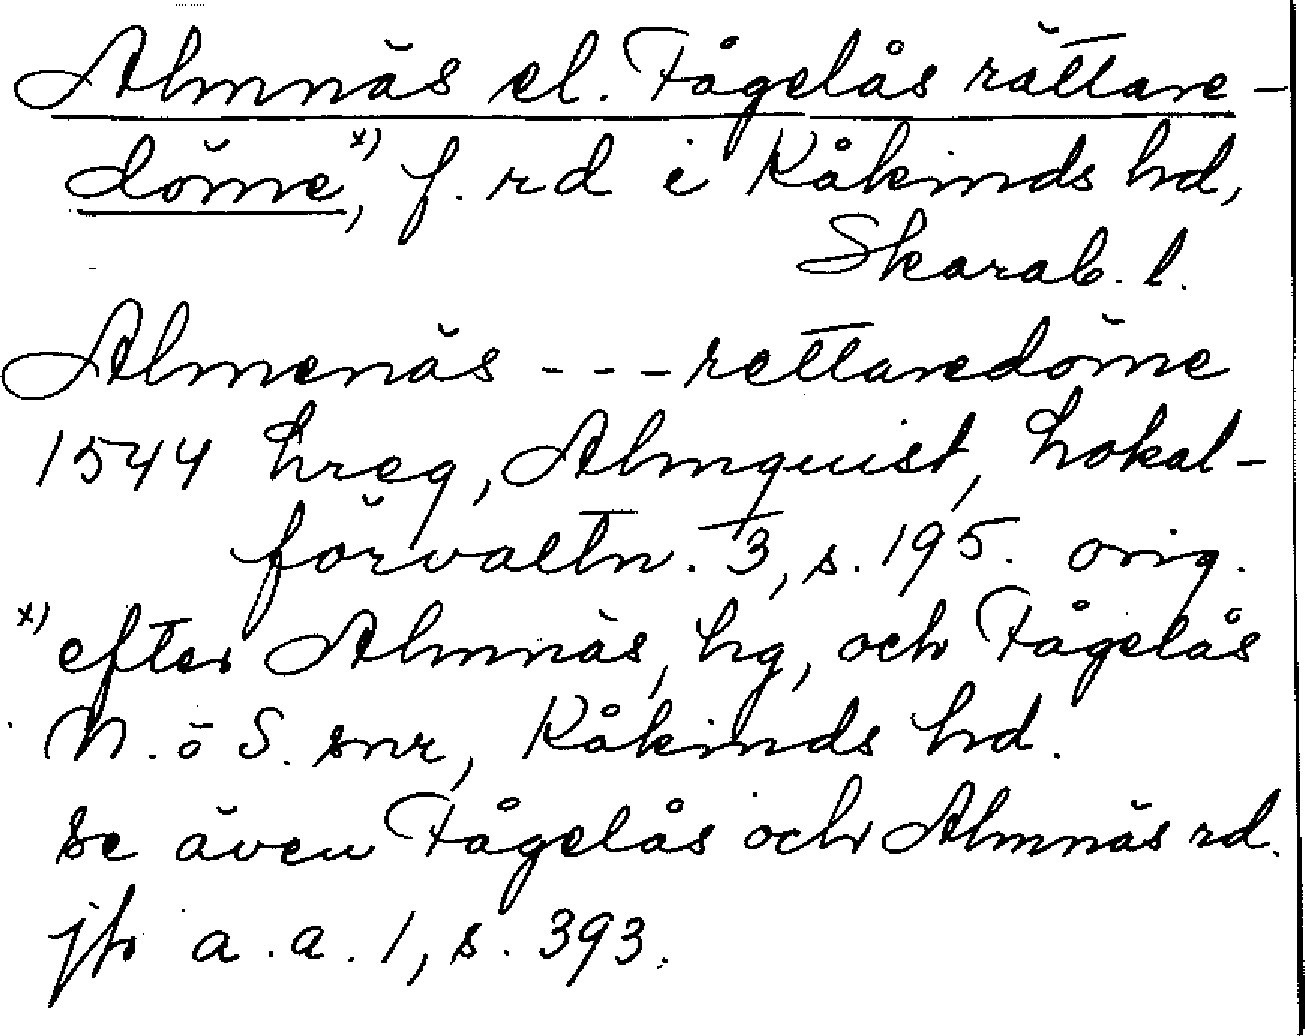 Almnäs el. Fågelås rättare-
döme,*) f. rd i Kåkinds hd,
Skarab. l.
Almenäs - - - rettaredöme
1544 hreg, Almquist, Lokal-
förvaltn. 3, s. 195. orig.
*) efter Almnäs, hg, och Fågelås
N. o S. snr, Kåkinds hd.
se även Fågelås och Almnäs rd.
jfr a.a. 1, s. 393.